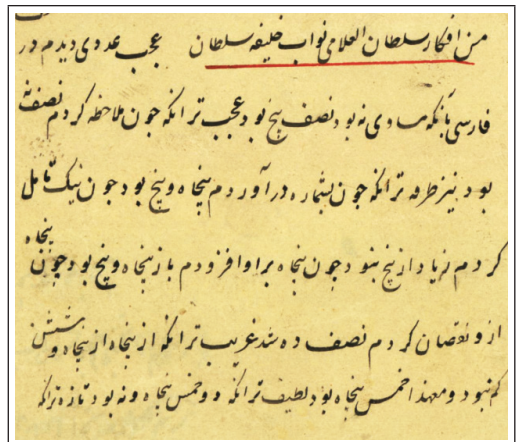 من افکار سلطان العلامی نواب خلیفه سلطان عجب عددی دیدم در
فارسی بآنکه مساوی نه بود نصف پنج بود عجب تر آنکه چون ملاحظه کردم نصف نه
بود نیز طرفه تر آنکه چون بشماره درآوردم پنجاه و پنج بود چون نیک تامل
کردم زیاد از پنج نبود چون پنجاه بر او افزودم باز پنجاه و پنج بود چون پنجاه
از و نقصان کردم نصف ده شد غریب تر آنکه از پنجاه از پنجاه و شش
کم نبود و معهذا خمس پنجاه بود لطیف تر آنکه دو خمس پنجاه و نه بود تازه تر آنکه